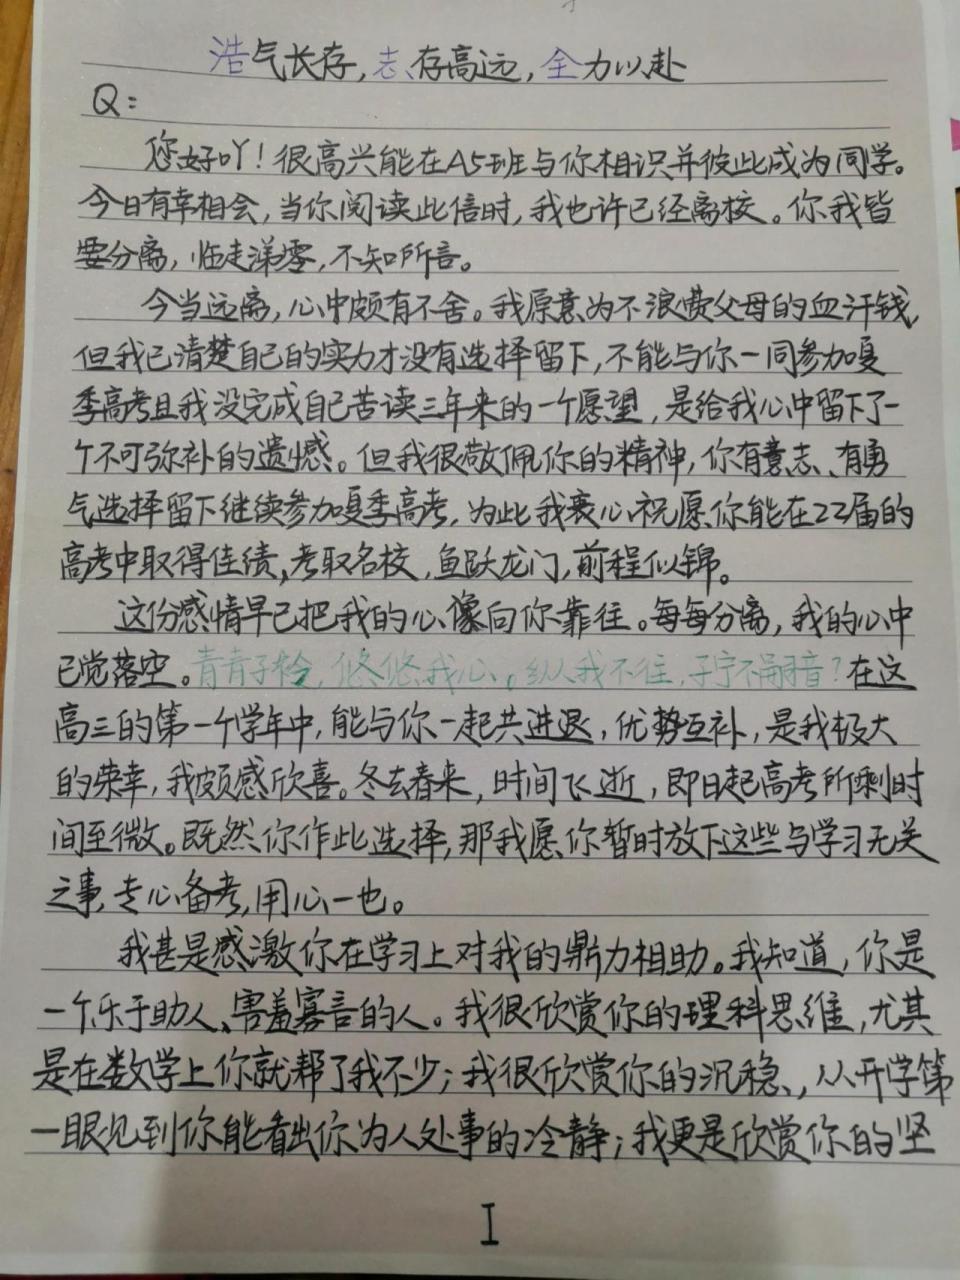 浩气长存,志存高远,全力以赴
Q:
您好吖!很高兴能在A5班与你相识并彼此成为同学。
今日有幸相会,当你阅读此信时,我也许已经离校。你我皆
要分离,临走涕零,不知所言。
今当远离,心中颇有不舍。我原意为不浪费父母的血汗钱,
但我已清楚自己的实力才没有选择留下,不能与你一同参加夏
季高考且我没完成自己苦读三年来的一个愿望,是给我心中留下了一
个不可弥补的遗憾。但我很敬佩你的精神,你有意志、有勇
气选择留下继续参加夏季高考,为此我衷心祝愿你能在22届的
高考中取得佳绩,考取名校,鱼跃龙门,前程似锦。
这份感情早已把我的心像向你靠往。每每分离,我的心中
已觉落空。青青子衿,悠悠我心。纵我不往,子宁不嗣音?在这
高三的第一个学年中,能与你一起共进退,优势互补,是我极大
的荣幸,我颇感欣喜。冬去春来,时间飞逝,即日起高考所剩时
间至微。既然你作此选择,那我愿你暂时放下这些与学习无关
之事,专心备考,用心一也。
我甚是感激你在学习上对我的鼎力相助。我知道,你是
一个乐于助人、害羞寡言的人。我很欣赏你的理科思维,尤其
是在数学上你就帮了我不少;我很欣赏你的沉稳,从开学第
一眼见到你能看出你为人处事的冷静;我更是欣赏你的坚
I